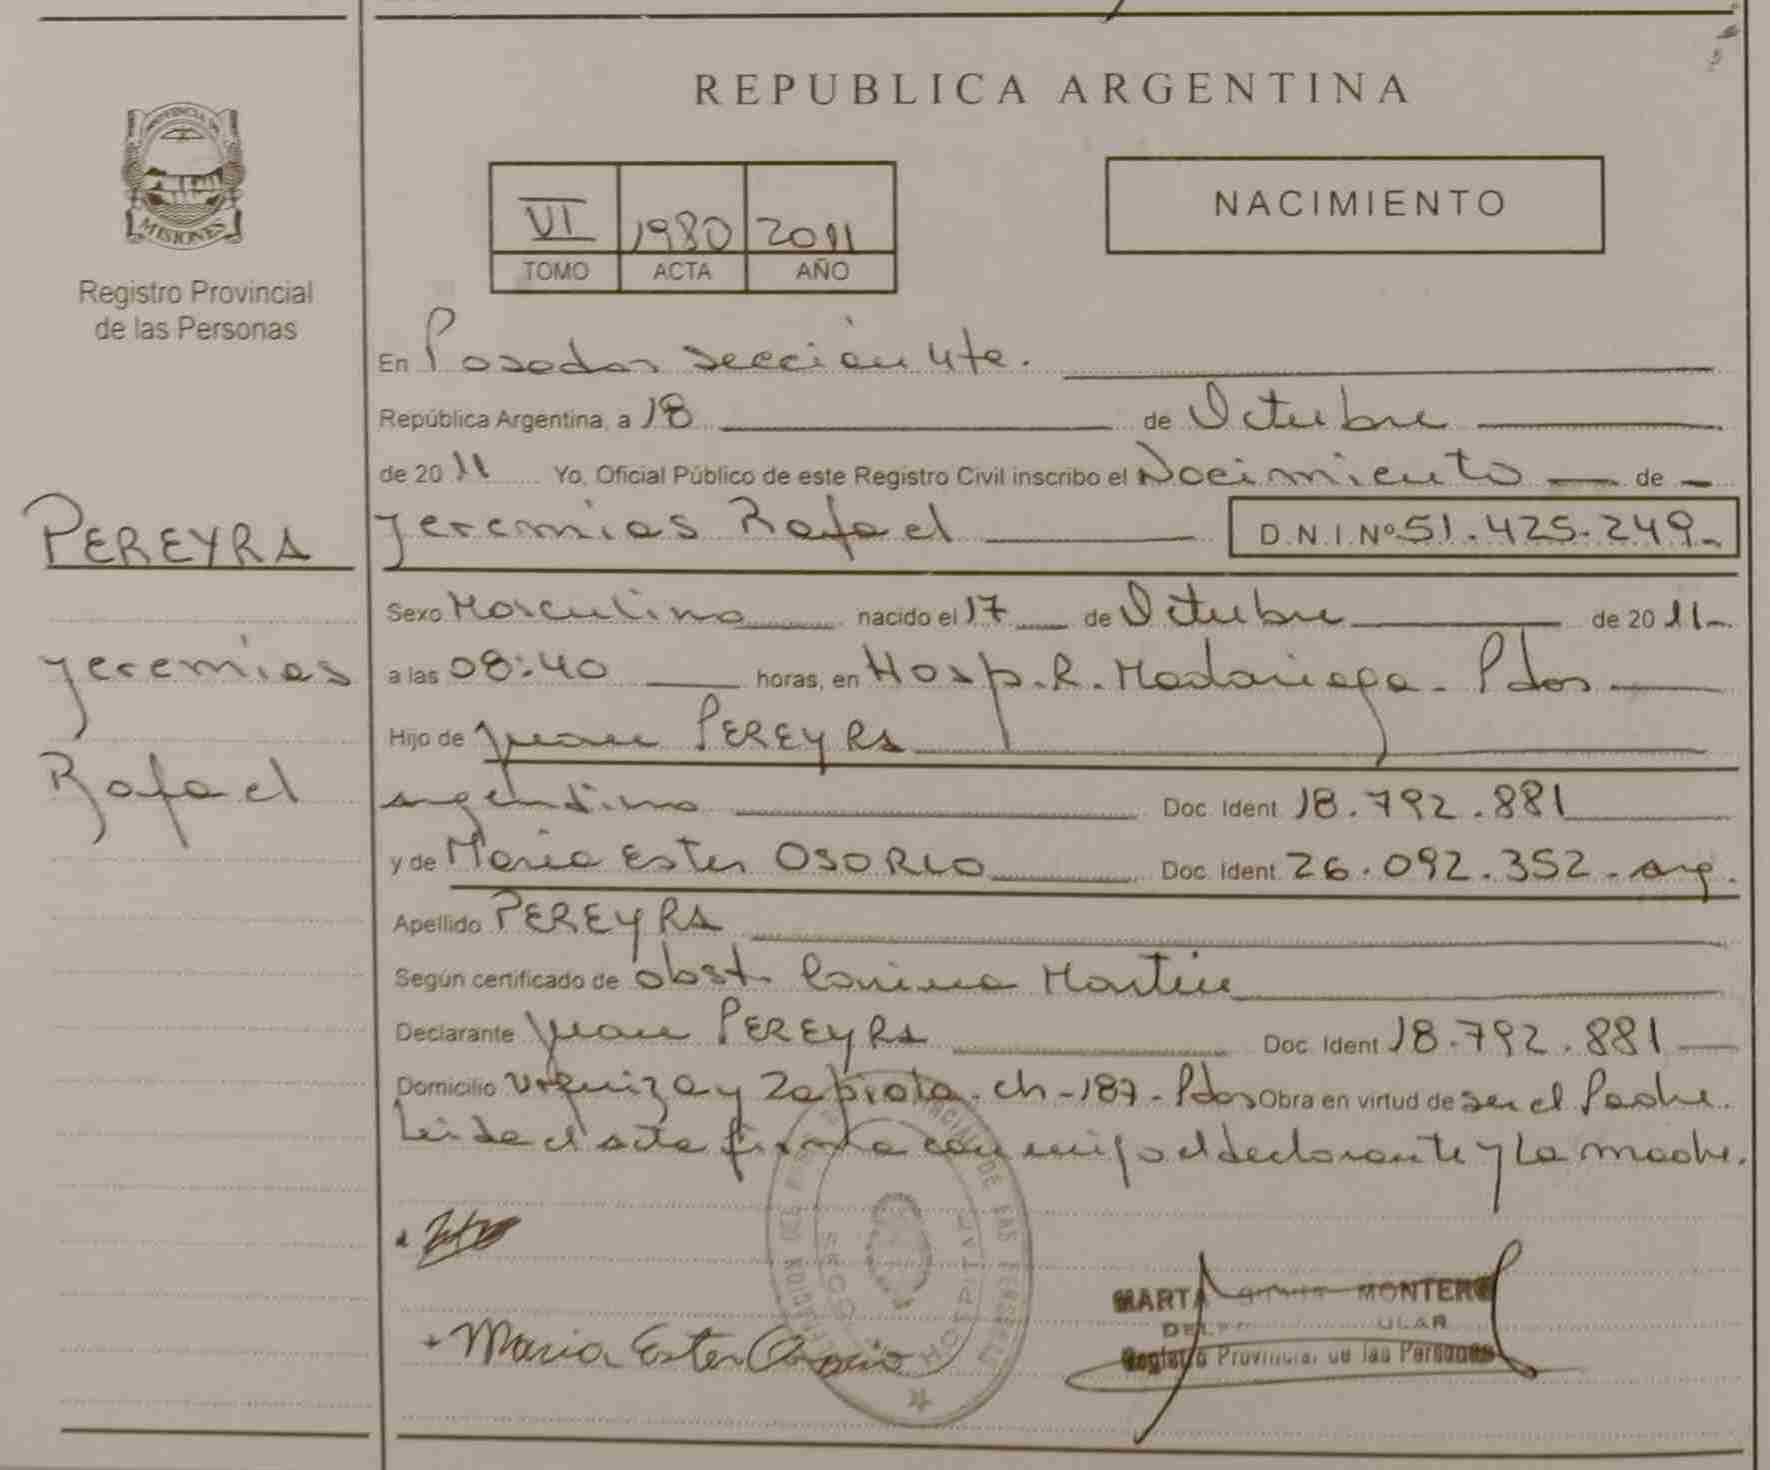 REPUBLICA ARGENTINA
NACIMIENTO
VI 1980 2011
TOMO ACTA AÑO
PROVINCIA DE
MISIONES
Registro Provincial
de las Personas
PEREYRA
Jeremias
Rafael
En Posadas sección 4ta.
República Argentina, a 18 de Octubre
de 2011 Yo, Oficial Público de este Registro Civil inscribo el Nacimiento de
Jeremias Rafael D.N.I.Nº 51.425.249
Sexo Masculino nacido el 17 de Octubre de 2011
a las 08:40 horas, en Hosp. R. Madariaga - Pdas
Hijo de Juan PEREYRA
argentino Doc. Ident. 18.792.881
y de Maria Ester OSORIO Doc. Ident. 26.092.352 - arg.
Apellido PEREYRA
Según certificado de obst. Corina
Declarante Juan PEREYRA Doc. Ident. 18.792.881
Domicilio Urquiza y Zapiola - ch - 187 - Pdas Obra en virtud de ser el Padre.
Leida el acta firma conmigo el declarante y la madre.
Maria Ester Osorio
MARTA MONTERO
Registro Provincial de las Personas
DE LAS PERSONAS
HOSPITAL